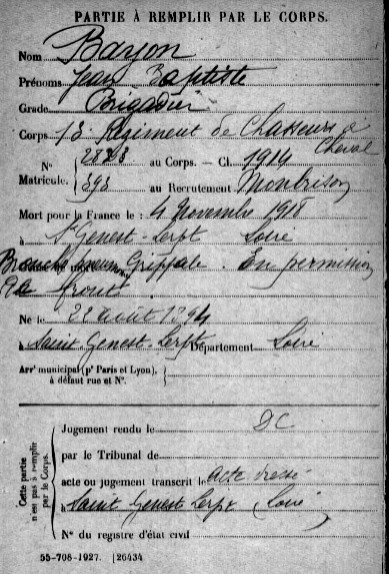 PARTIE À REMPLIR PAR LE CORPS.
Nom Bayon
Prénoms Jean Baptiste
Grade Brigadier
Corps 13 Régiment de Chasseurs à
Cheval
N° 2828 au Corps. — Cl. 1914
Matricule. 393 au Recrutement Montbrison
Mort pour la France le : 4 Novembre 1918
à St Genest-Lerpt Loire
Grippale. En permission
front
Né le 28 août 1894
à Saint-Genest-Lerpt Département Loire
Arrt municipal (pr Paris et Lyon),
à défaut rue et N°.
Cette partie
n'est pas à remplir
par le Corps.
Jugement rendu le DC
par le Tribunal de
acte ou jugement transcrit le Acte dressé
à Saint Genest Lerpt Loire
N° du registre d'état civil
55-708-1927. [26434